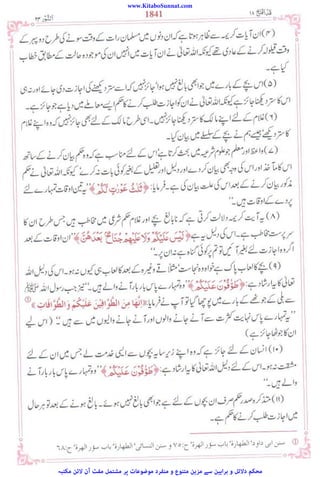 www.KitaboSunnat.com
قد افلح ١٨
1841
النُّوْر ٢٤
(٣) ان آیات کریمہ سے ظاہر ہوتا ہے کہ ان دنوں میں مسلمان رات کے وقت سونے کی طرح دوپہر کے
وقت قیلولہ کرنے کے عادی تھے کیونکہ اللہ تعالیٰ نے ان آیات میں انہیں ان کی موجودہ حالت کے مطابق خطاب
کیا ہے۔
(۵) اس بچے کے بارے میں جو ابھی بالغ نہیں ہوا جائز نہیں کہ اسے ستر دیکھنے کی اجازت دی جائے اور نہ ہی
اس کا ستر دیکھنا جائز ہے کیونکہ اللہ تعالیٰ نے ان کو اجازت طلب کرنے کا حکم ایسے معاملے میں دیا ہے جو جائز ہے۔
(۶) غلام کے لئے اپنے مالک کا ستر دیکھنا جائز نہیں۔ اسی طرح مالک کے لئے بھی جائز نہیں کہ وہ اپنے غلام
کا ستر دیکھے جیسے ہم نے بچے کے سلسلے میں بیان کیا۔
(۷) واعظ اور معلم جو علوم شرعیہ میں بحث کرتا ہے اس کے لئے مناسب ہے کہ وہ حکم بیان کرنے کے ساتھ
اس کا ماخذ اور اس کی وجہ بھی بیان کر دے اور دلیل اور تعلیل کے بغیر کوئی بات نہ کرے کیونکہ اللہ تعالیٰ نے حکم
مذکور بیان کرنے کے بعد اس کی علت بیان کی ہے۔ فرمایا: ﴿ثَلٰثُ عَوْرٰتٍ لَّكُمْ﴾ ”یہ تین اوقات تمہارے لئے
پردے کے اوقات ہیں۔“
(۸) یہ آیت کریمہ دلالت کرتی ہے کہ نابالغ بچے اور غلام حکم شرعی میں مخاطب ہیں جس طرح ان کا
سرپرست مخاطب ہے۔ اس کی دلیل یہ ہے ﴿لَيْسَ عَلَيْكُمْ وَلَا عَلَيْهِمْ جُنَاحٌۢ بَعْدَهُنَّ﴾ ”ان اوقات کے بعد
اگر وہ اجازت لئے بغیر آئیں تو تم پر کوئی گناہ ہے نہ ان پر۔“
(۹) بچے کا لعاب پاک ہے خواہ وہ نجاست، مثلاً قے وغیرہ کے بعد کا لعاب ہی کیوں نہ ہو۔ اس کی دلیل اللہ
تعالیٰ کا یہ ارشاد ہے: ﴿طَوّٰفُوْنَ عَلَيْكُمْ﴾ ”وہ تمہارے پاس بار بار آنے والے ہیں۔“ نیز جب رسول اللہ
ﷺ سے بلی کے جوٹھے کے بارے میں پوچھا گیا تو آپ نے فرمایا: ﴿اِنَّهَا مِنَ الطَّوَّافِيْنَ عَلَيْكُمْ وَ الطَّوَّافَاتِ﴾ ①
”یہ تمہارے پاس نہایت کثرت سے آنے جانے والوں اور آنے جانے والیوں میں سے ہیں۔“ (اس لیے
ان کا جوٹھا جائز ہے)
(۱۰) انسان کے لئے جائز ہے کہ وہ اپنے زیرِ سایہ بچوں سے ایسی خدمت لے جس میں ان کے لئے
مشقت نہ ہو۔ اس کے لئے دلیل اللہ تعالیٰ کا یہ ارشاد ہے: ﴿طَوّٰفُوْنَ عَلَيْكُمْ﴾ ”وہ تمہارے پاس بار بار آنے
والے ہیں۔“
(۱۱) متذکرہ صدر حکم صرف ان بچوں کے لئے ہے جو ابھی بالغ نہیں ہوئے۔ بالغ ہونے کے بعد تو ہر حال
میں اجازت طلب کرنے کا حکم ہے۔
① سنن ابی داود' الطھارة' باب سؤر الھرة' ح: ٧٥ و سنن النسائی' الطھارة' باب سؤر الھرة' ح: ٦٨
محکم دلائل و براہین سے مزین متنوع و منفرد موضوعات پر مشتمل مفت آن لائن مکتبہ